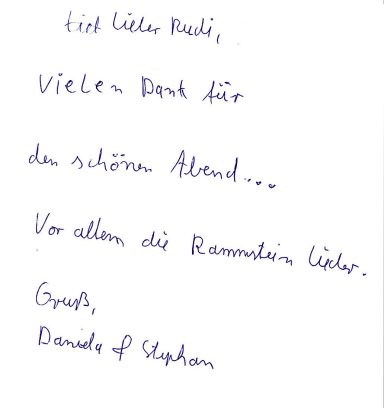 lieber Rudi,
Vielen Dank für
den schönen Abend...
Vor allem die Rammstein lieder.
Gruß,
Daniela & Stephan